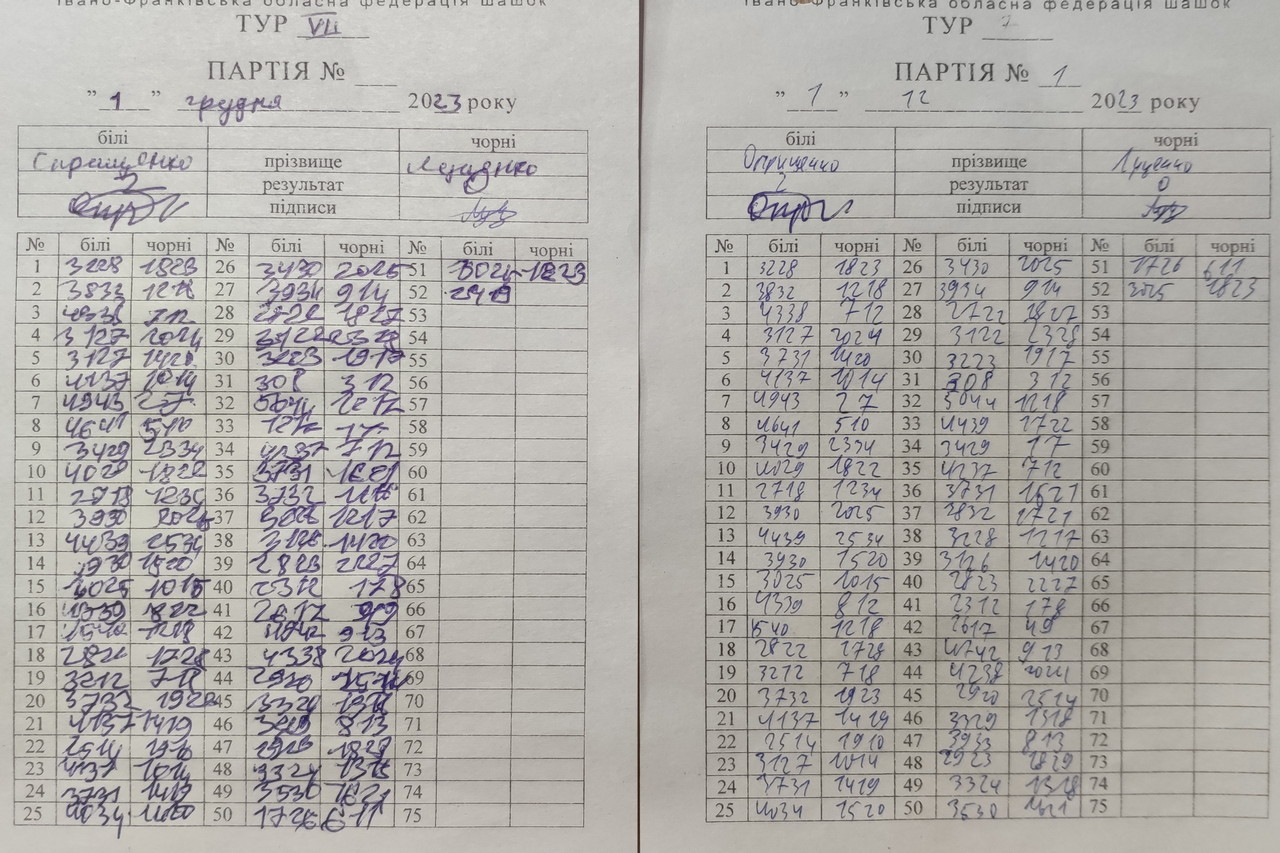 Івано-Франківська обласна федерація шашок
ТУР VII
ПАРТІЯ №
" 1 " грудня 2023 року
білі чорні
прізвище
2 результат 0
підписи
№ білі чорні № білі чорні № білі чорні
1 3228 1823 26 3430 2025 51 1823
2 3832 1218 27 3934 914 52
3 712 28 1827 53
4 3127 2024 29 54
5 3127 1420 30 1917 55
6 4137 1014 31 308 312 56
7 4943 27 32 5044 57
8 4641 510 33 58
9 3429 2334 34 712 59
10 4029 1822 35 3731 60
11 2718 36 3732 61
12 3930 2025 37 1217 62
13 4439 2534 38 3126 1420 63
14 3930 1520 39 2823 2227 64
15 3025 1015 40 2312 178 65
16 4339 822 41 2617 66
17 1218 42 4742 913 67
18 2822 1728 43 4338 2024 68
19 3212 718 44 2920 69
20 3732 1923 45 3329 1318 70
21 4137 1419 46 813 71
22 2514 1910 47 2923 1829 72
23 1014 48 3324 1318 73
24 3731 1419 49 3530 1621 74
25 4034 50 1726 611 75
Івано-Франківська обласна федерація шашок
ТУР
ПАРТІЯ № 1
" 1 " 12 2023 року
білі чорні
Оприщенко прізвище Луценко
2 результат 0
підписи
№ білі чорні № білі чорні № білі чорні
1 3228 1823 26 3430 2025 51 1726 611
2 3832 1218 27 3934 914 52 3025 1823
3 4338 712 28 2722 1827 53
4 3127 2024 29 3122 2328 54
5 3731 1420 30 3223 1917 55
6 4137 1014 31 308 312 56
7 4943 27 32 5044 1218 57
8 4641 510 33 4439 1722 58
9 3429 2334 34 3429 17 59
10 4029 1822 35 4237 712 60
11 2718 1234 36 3731 1621 61
12 3930 2025 37 3832 1721 62
13 4439 2534 38 3228 1217 63
14 3930 1520 39 3126 1420 64
15 3025 1015 40 2823 2227 65
16 4339 812 41 2312 178 66
17 1540 1218 42 2617 49 67
18 2822 1728 43 4742 913 68
19 3212 718 44 4238 2024 69
20 3732 1923 45 2920 2514 70
21 4137 1419 46 3329 1318 71
22 2514 1910 47 3933 813 72
23 3127 1014 48 2923 1829 73
24 3731 1419 49 3324 1318 74
25 4034 1520 50 3530 1621 75